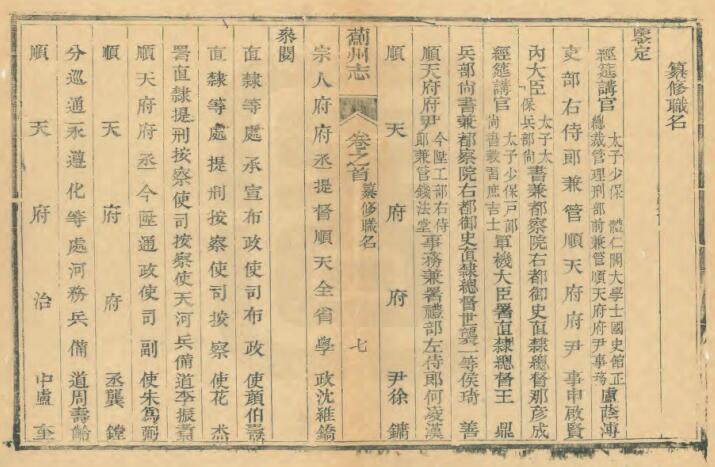 纂修職名
鑒定
經筵講官太子少保體仁閣大學士國史館正總裁管理刑部前兼管順天府府尹事務盧蔭溥
吏部右侍郎兼管順天府府尹事申啟賢
內大臣太子太保兵部尚書兼都察院右都御史直隸總督那彥成
經筵講官太子少保戶部尚書教習庶吉士軍機大臣署直隸總督王鼎
兵部尚書兼都察院右都御史直隸總督世襲一等侯琦善
順天府府尹今陞工部右侍郎兼管錢法堂事務兼署禮部左侍郎何凌漢
順天府府尹徐鏞
薊州志 卷之首 纂修職名 七
宗人府府丞提督順天全省學政沈維鐈
參閱
直隸等處承宣布政使司布政使顏伯燾
直隸等處提刑按察使司按察使花杰
署直隸提刑按察使司按察使天河兵備道李振翥
順天府府丞今陞通政使司副使朱為弼
順天府府丞龔鏜
分巡通永遵化等處河務兵備道周壽齡
順天府治中盧奎